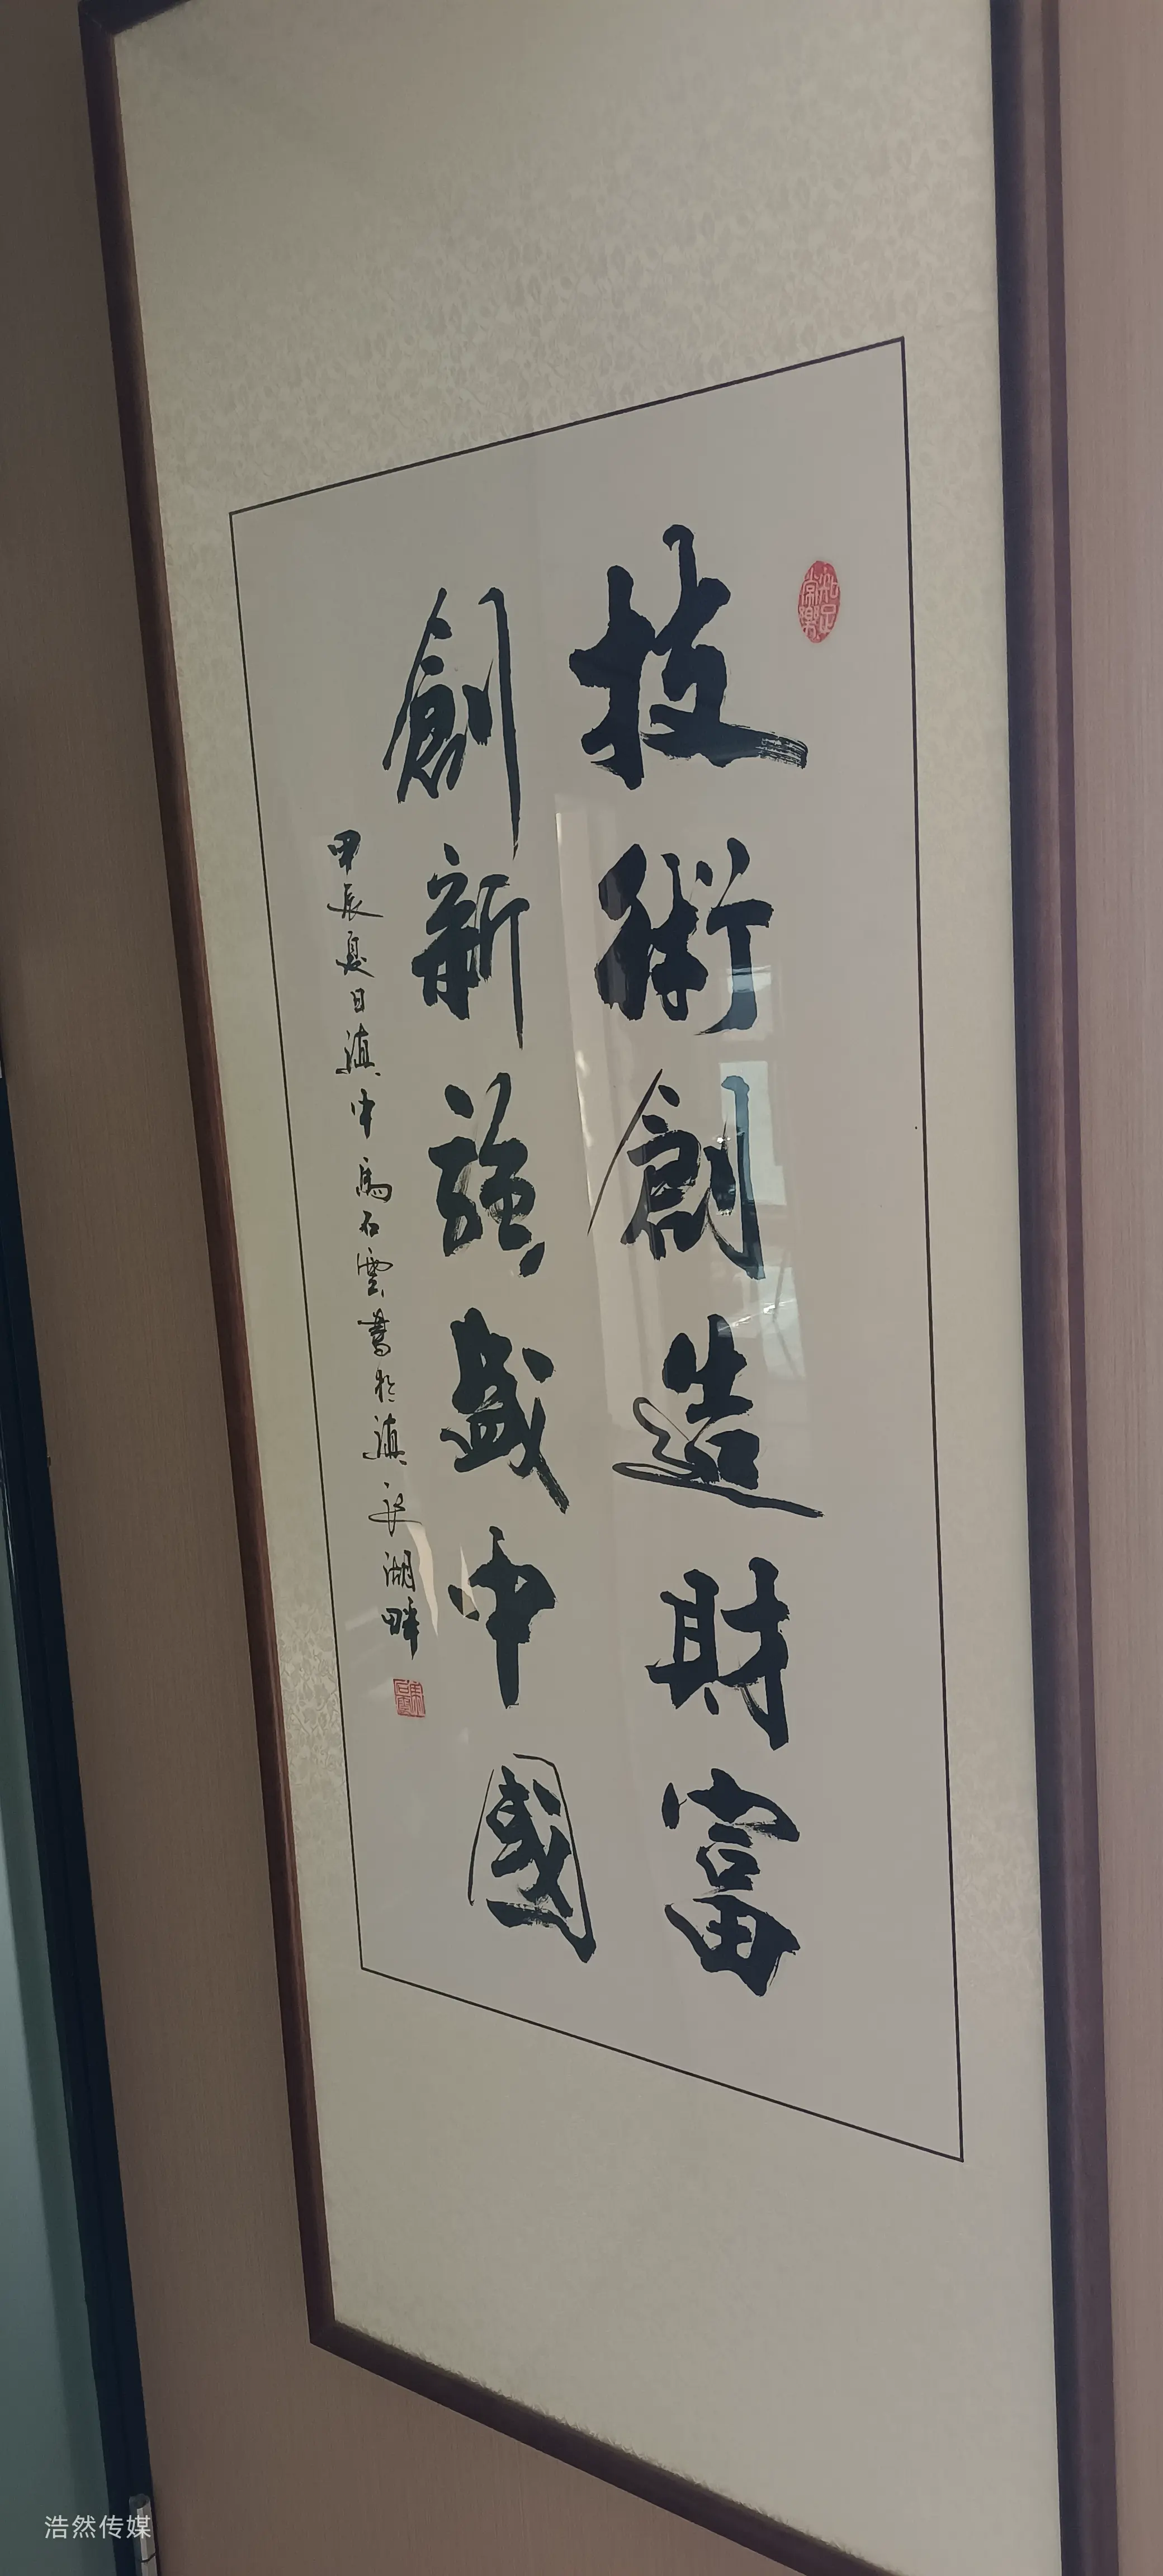 知足常樂
技術創造財富
創新强盛中國
甲辰夏日滇中馬石雲書於滇池湖畔
浩然传媒